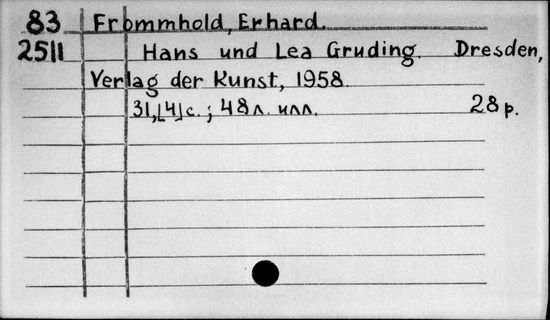 83 Frommhold, Erhard.
2511 Hans und Lea Gruding. Dresden,
Verlag der Kunst, 1958.
31,[4]с.; 48л. илл. 28р.